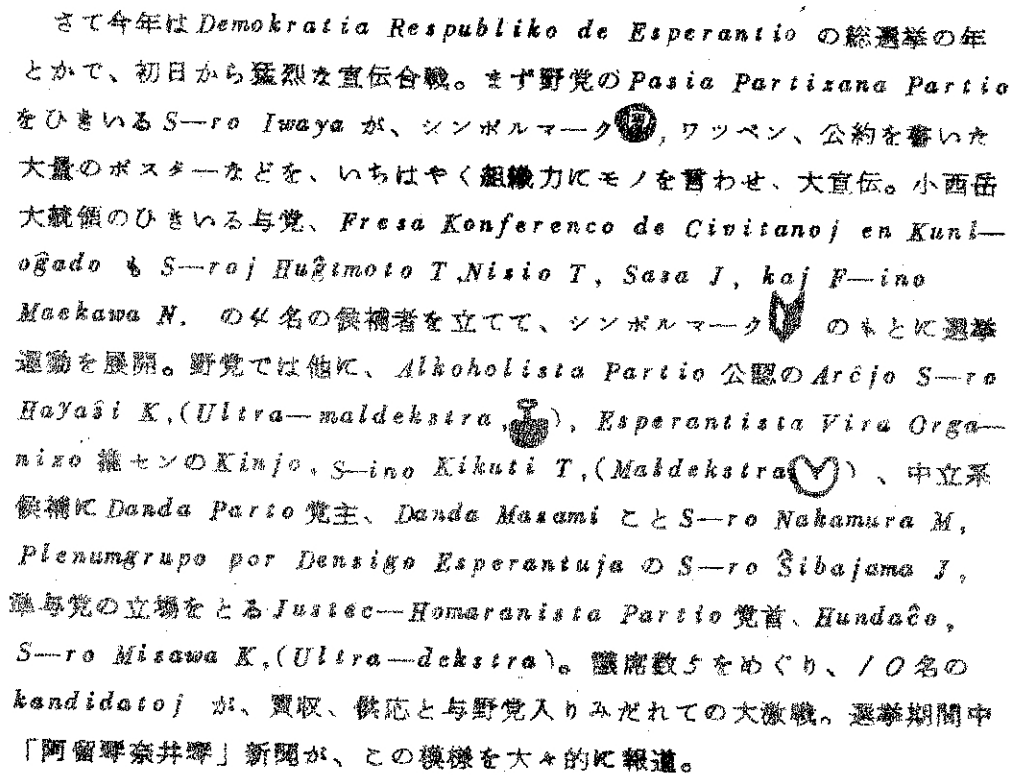 さて今年は Demokratia Respubliko de Esperantio の総選挙の年
とかで、初日から猛烈な宣伝合戦。まず野党の Pasia Partizana Partio
をひきいる S—ro Iwaya が、シンボルマーク , ワッペン、公約を書いた
大量のポスターなどを、いちはやく組織力にモノを言わせ、大宣伝。小西岳
大統領のひきいる与党、Fresa Konferenco de Civitanoj en Kunl—
oĝado も S—roj Huĝimoto T ,Nisio T, Sasa J, kaj F—ino
Maekawa N. の4名の候補者を立てて、シンボルマーク のもとに選挙
運動を展開。野党では他に、Alkoholista Partio 公認の Arĉjo S—ro
Hayaŝi K,(Ultra—maldekstra, ), Esperantista Vira Orga—
nizo センの Kinjo, S—ino Kikuti T,(Maldekstra )、中立系
候補に Danda Parto 党主、Danda Masami こと S—ro Nakamura M,
Plenumgrupo por Densigo Esperantuja の S—ro Ŝibajama J,
準与党の立場をとる Justec—Homaranista Partio 党首、Hundaĉo,
S—ro Misawa K,(Ultra—dekstra)。議席数5をめぐり、10名の
kandidatoj が、買収、供応と与野党入りみだれての大激戦。選挙期間中
「阿留琴奈井琴」新聞が、この模様を大々的に報道。